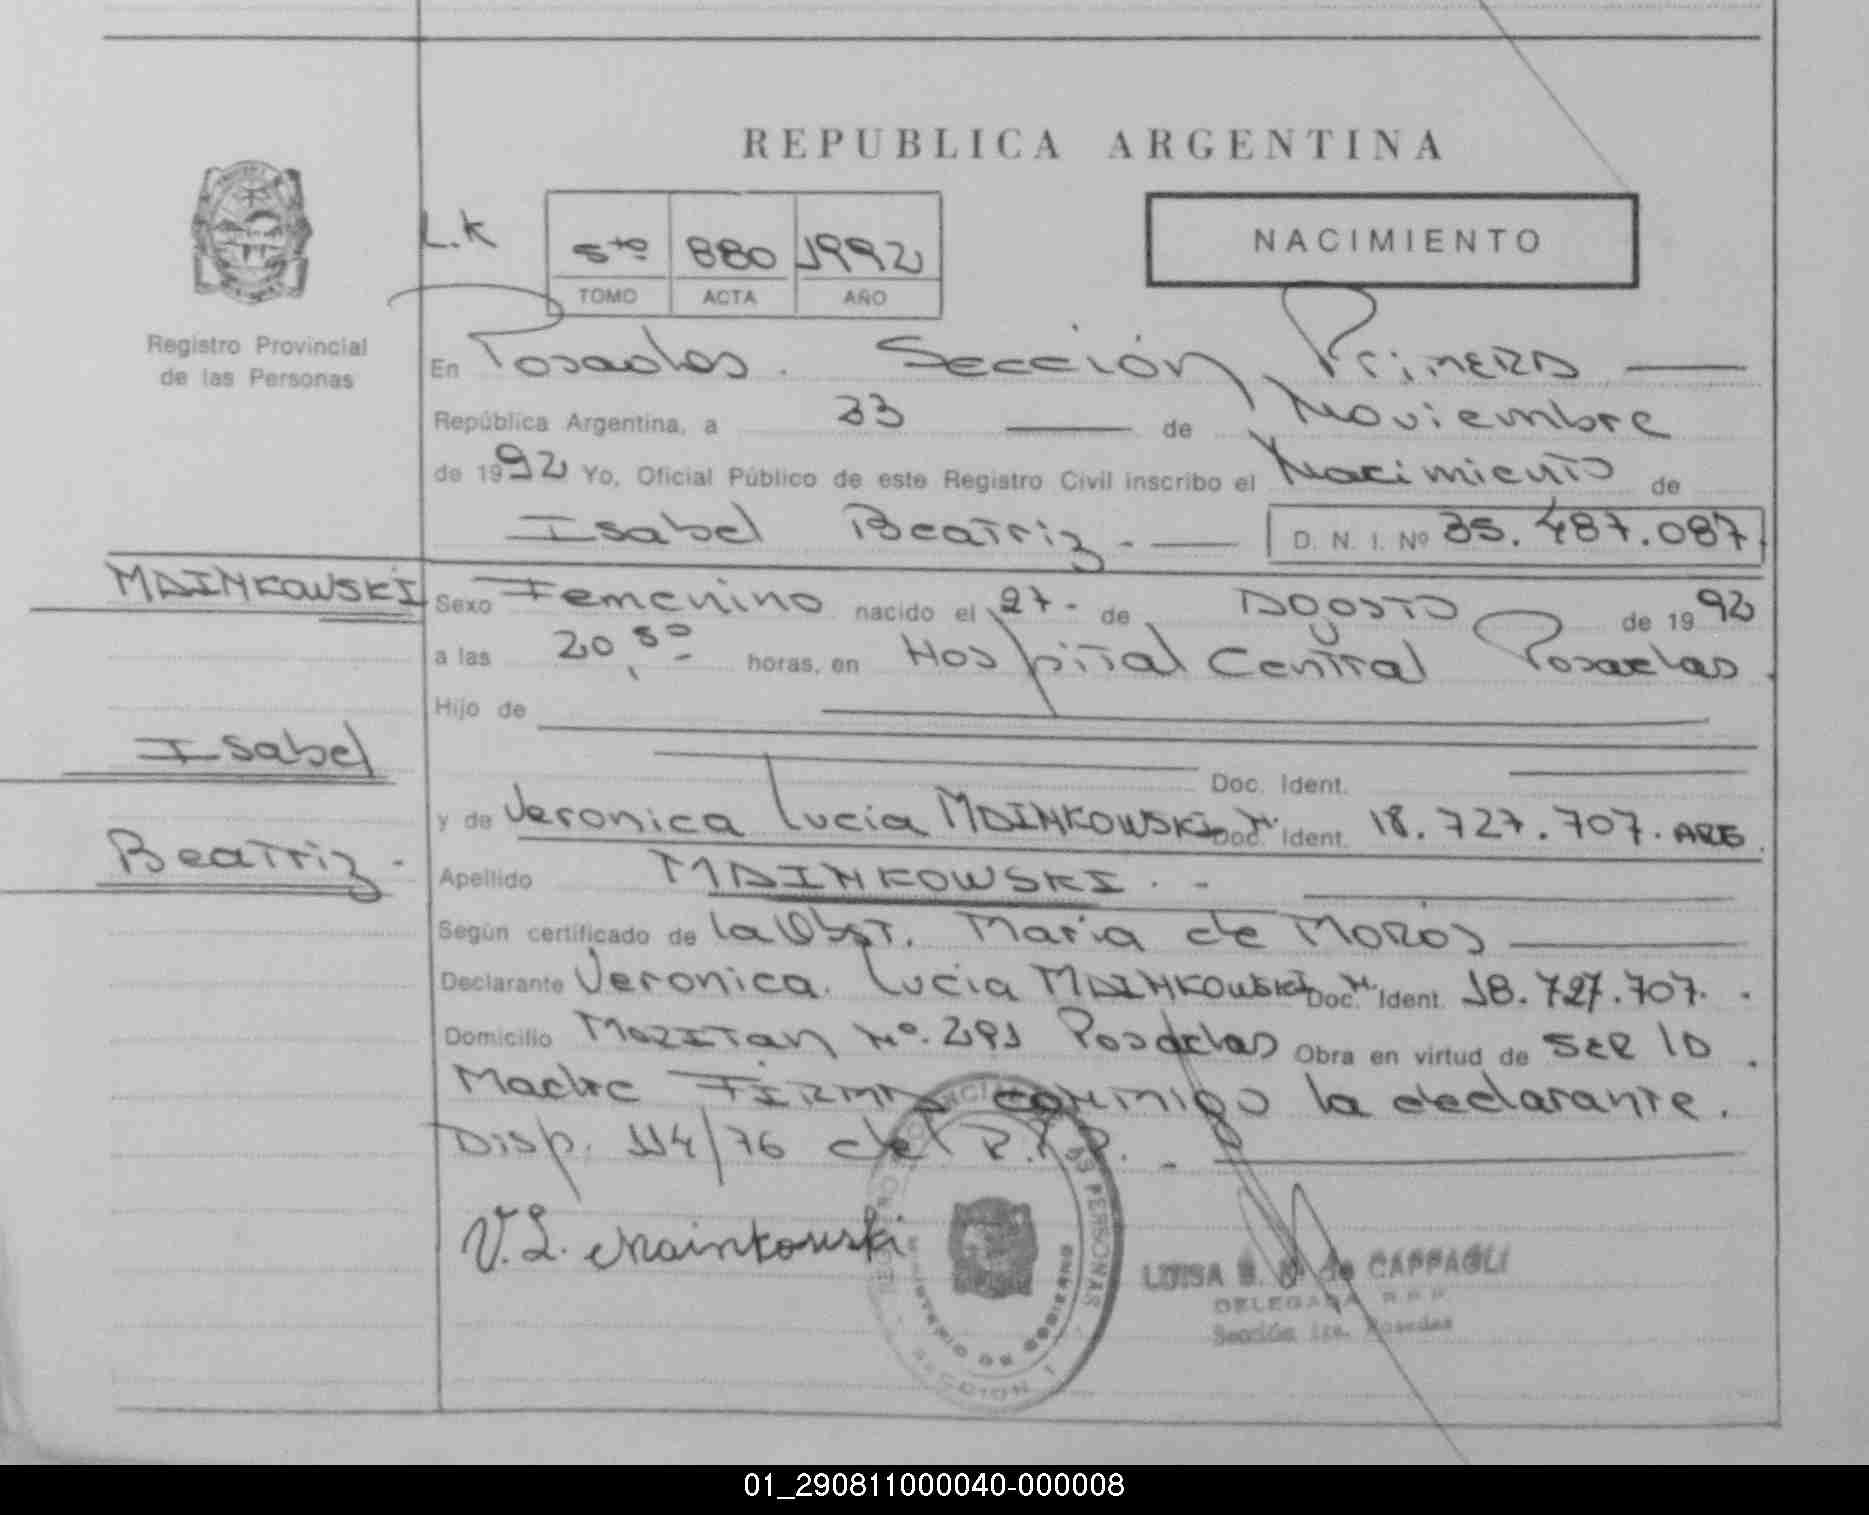 REPUBLICA ARGENTINA
L.K
5to 880 1992
TOMO ACTA AÑO
NACIMIENTO
Registro Provincial
de las Personas
En Posadas. Sección Primera
República Argentina, a de Noviembre
de 1992 Yo, Oficial Público de este Registro Civil inscribo el Nacimiento de
Isabel Beatriz.- D. N. I. Nº 35.487.087
MAINKOWSKI
Sexo Femenino nacido el 27- de Agosto de 1992
a las 20,50 horas, en Hospital Central Posadas.
Hijo de
Isabel
Doc. Ident.
y de Veronica Lucia MAINKOWSKI Doc. Ident. 18.727.707. ARG.
Beatriz.
Apellido MAINKOWSKI.-
Según certificado de la Obst. Maria de
Declarante Veronica Lucia MAINKOWSKI Doc. Ident. 18.727.707.
Domicilio Nº. Posadas Obra en virtud de SER la
Madre FIRMA conmigo la declarante.
Disp. 114/76 del R.P.P.-
V.L. Mainkowski
MINISTERIO DE GOBIERNO
SECCION 1
LUISA B. N. de CAPPAGLI
DELEGADA R.P.P.
Sección 1ra. Posadas
01_290811000040-000008